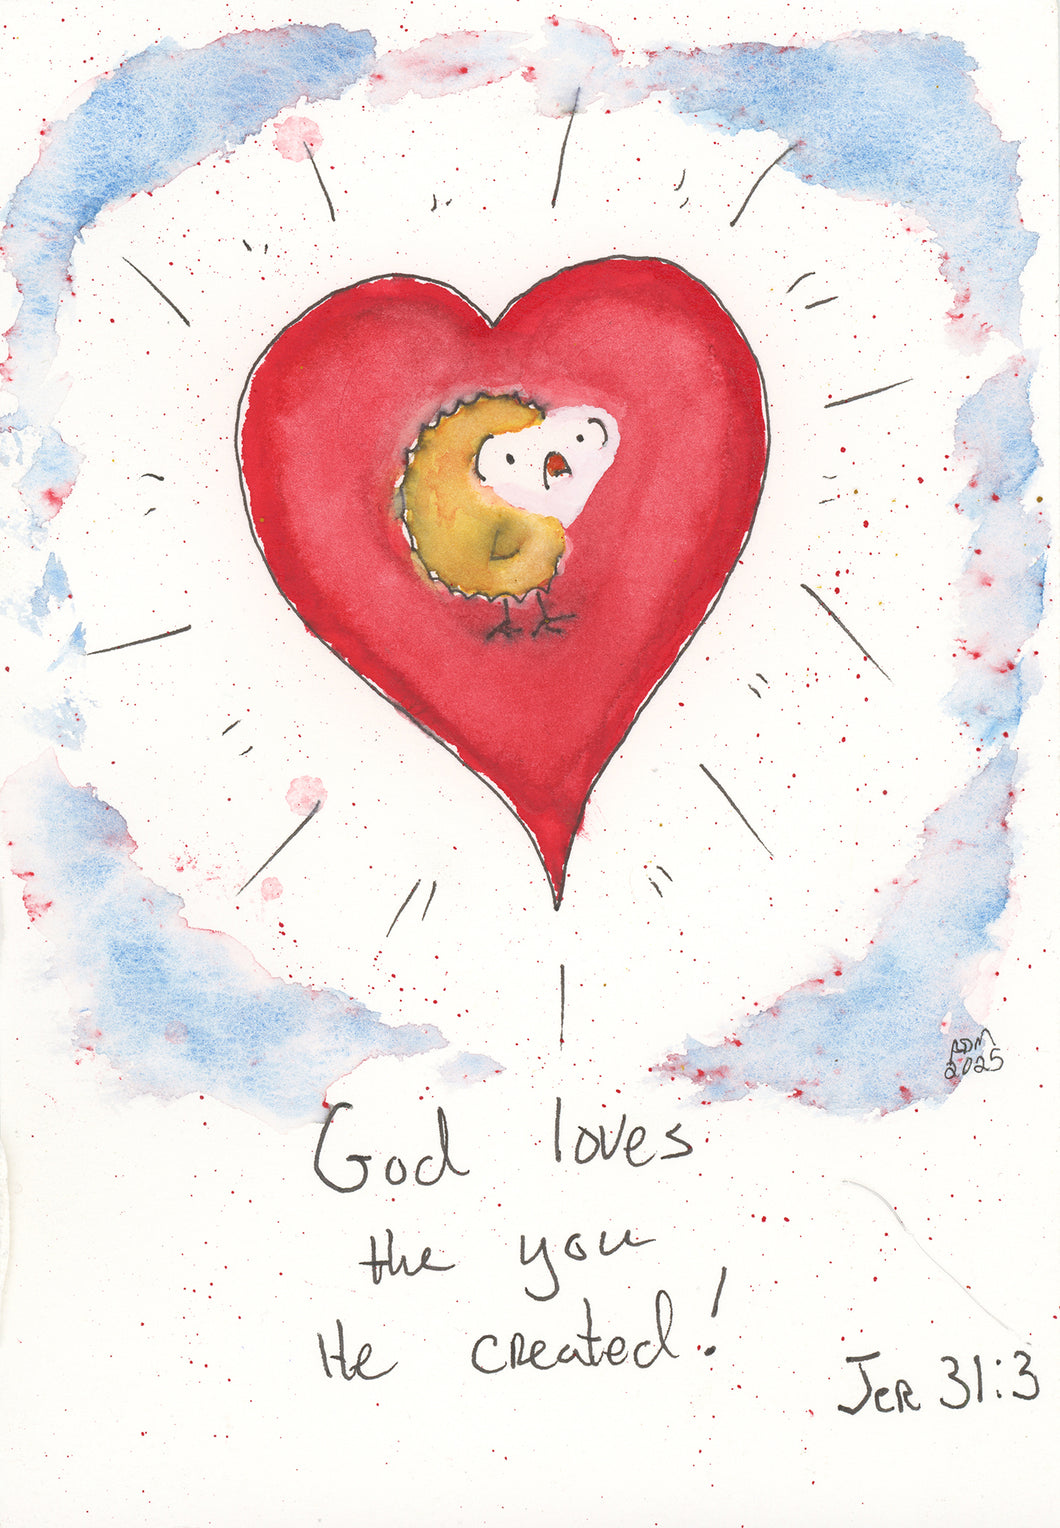 RDM
2025
God loves
the you
He created!
Jer 31:3